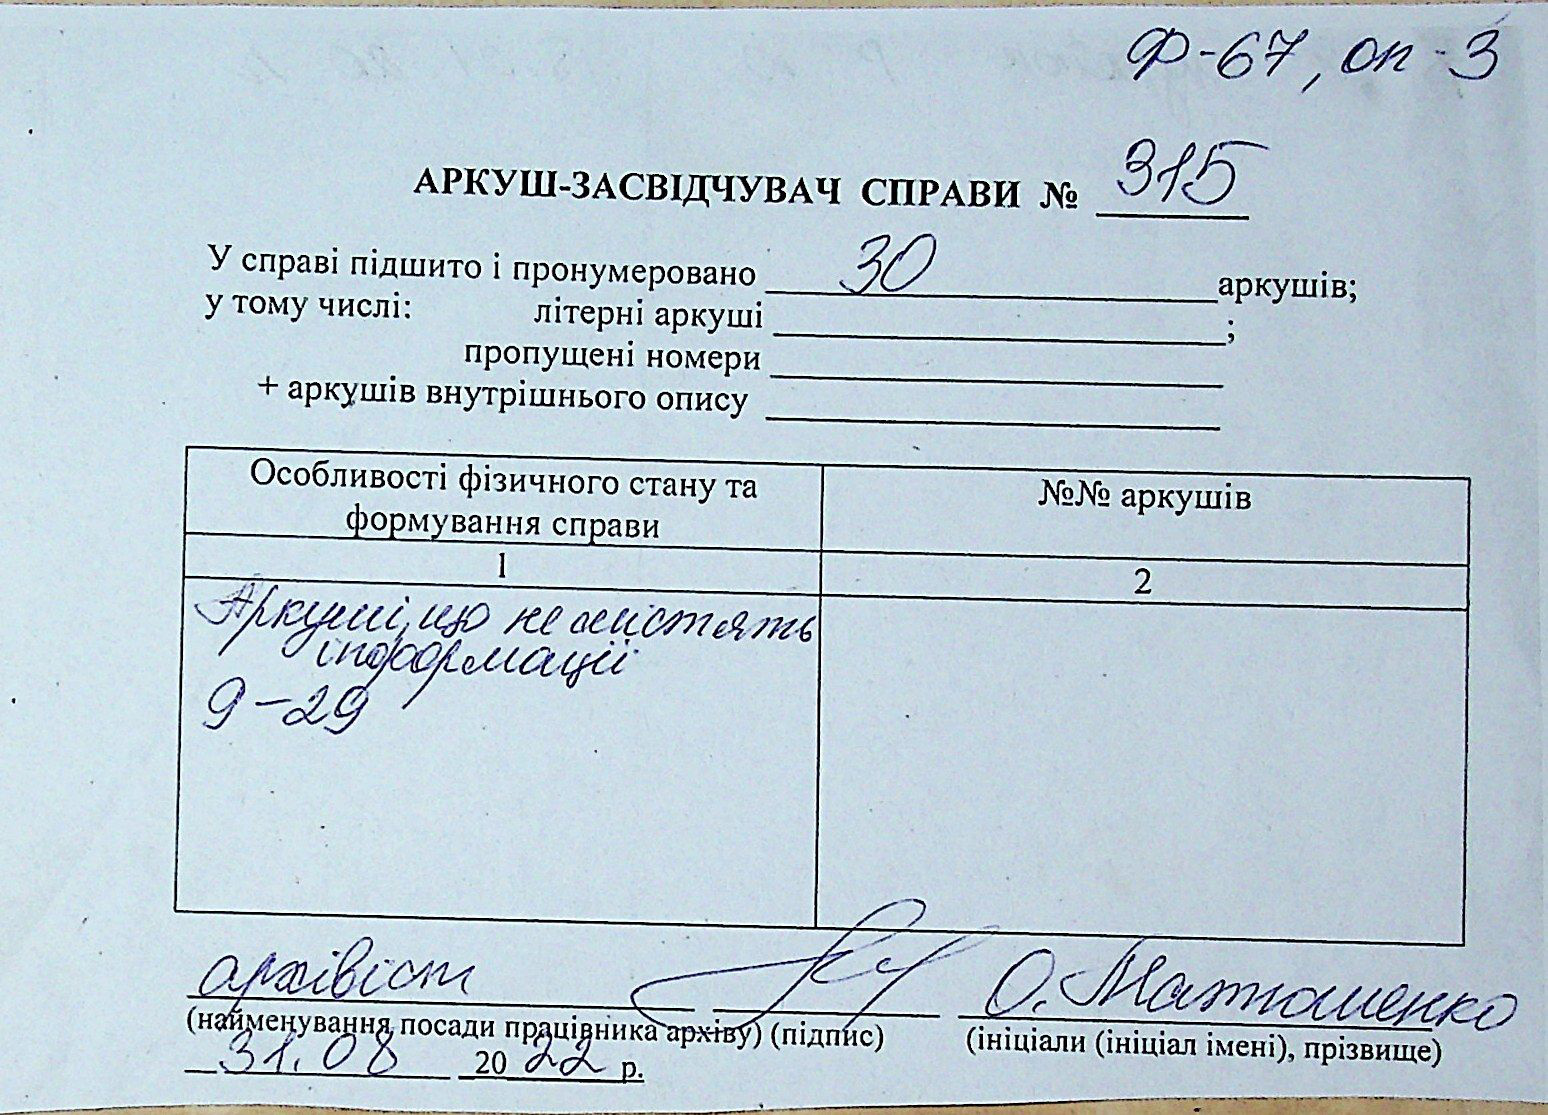 Ф-67, оп-3
АРКУШ-ЗАСВІДЧУВАЧ СПРАВИ № 315
У справі підшито і пронумеровано 30 аркушів;
у тому числі: літерні аркуші ;
пропущені номери
+ аркушів внутрішнього опису
Особливості фізичного стану та
формування справи
№№ аркушів
1
2
Аркуші, що не містять
інформації
9-29
архівіст О. Матюшенко
(найменування посади працівника архіву) (підпис) (ініціали (ініціал імені), прізвище)
31.08 2022 р.